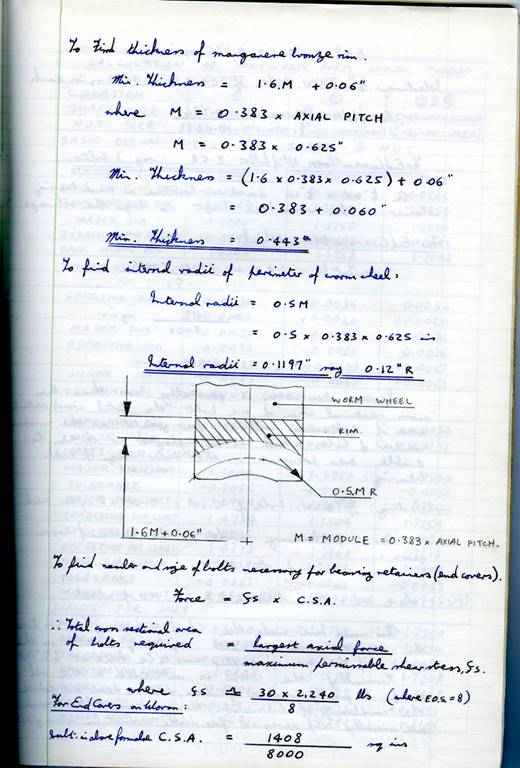 To Find thickness of manganese bronze rim.
Min. Thickness = 1·6.M + 0·06"
where M = 0·383 x AXIAL PITCH
M = 0·383 x 0·625"
Min. Thickness = (1·6 x 0·383 x 0·625) + 0·06"
= 0·383 + 0·060"
Min. Thickness = 0·443"
To find internal radii of perimeter of worm wheel:
Internal radii = 0·5M
= 0·5 x 0·383 x 0·625 ins
Internal radii = 0·1197" say 0·12"R
WORM WHEEL
RIM.
0·5.M R
1·6M + 0·06"
M = MODULE = 0·383 x AXIAL PITCH.
To find number and size of bolts necessary for bearing retainers (end covers).
Force = fs x C.S.A.
∴ Total cross sectional area
of bolts required = largest axial force
maximum permissable shear stress, fs.
where fs ≏ 30 x 2,240 lbs (where F.O.S. = 8)
8
For End Covers on Worm:
subt. in above formulae C.S.A. = 1408 sq ins
8000